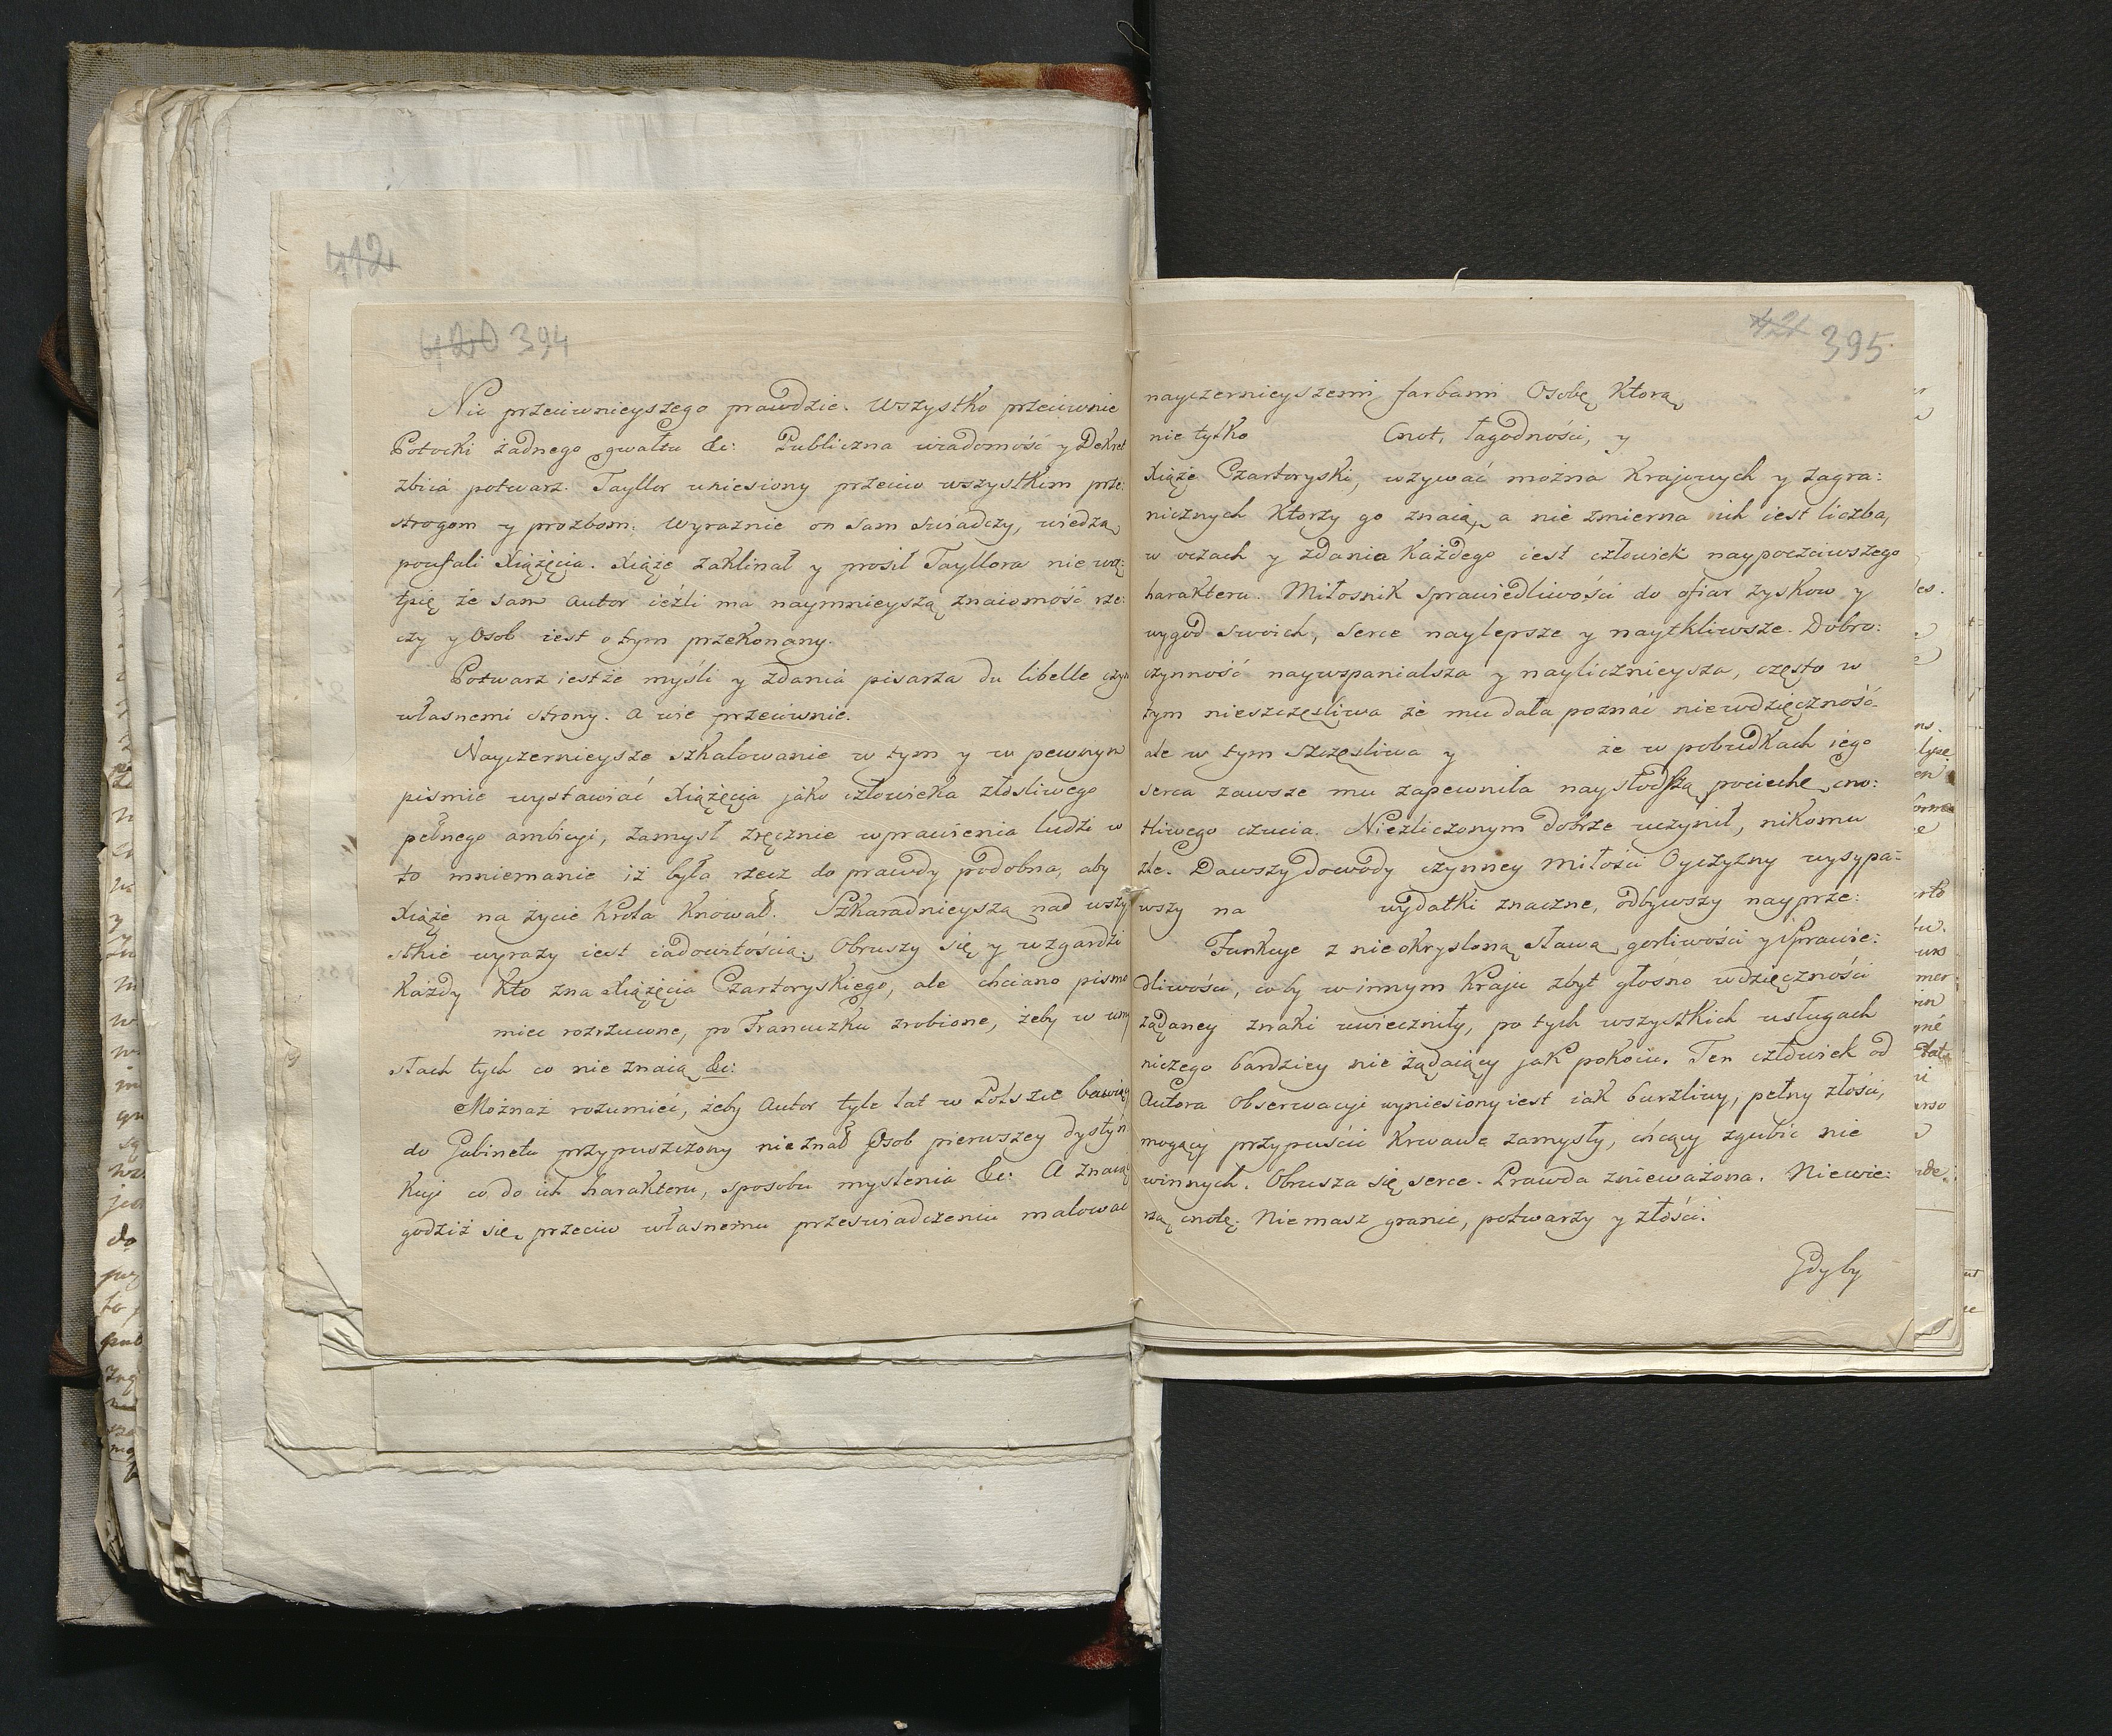 412
420 394
Nic przeciwnieyszego prawdzie. Wszystko przeciwnie
Potocki żadnego gwałtu &c: Publiczna wiadomość y Dekret
zbiia potwarz. Tayllor uniesiony przeciw wszystkim prze:
strogom y prozbom; wyraznie on sam swiadczy, wiedzą
poufali Xiążęcia. Xiąże zaklinał y prosił Tayllora nie wą:
tpię że sam autor ieźli ma naymnieyszą znaiomość rze:
czy y osob iest o tym przekonany.
Potwarz iestże myśli y zdania pisarza du libelle czyn
własnemi strony. A wie przeciwnie.
Nayczernieysze szkalowanie w tym y w pewnym
pismie wystawiać Xiążęcia jako człowieka złosliwego
pełnego ambicyi, zamysł zręcznie wprawienia ludzi w
to mniemanie iż była rzecz do prawdy podobna, aby
Xiąże na życie Krola knował. Szkaradnieyszą nad wszy
stkie wyrazy iest iadowitością. Obruszy się y wzgardzi
Każdy kto zna Xiążęcia Czartoryskiego, ale chciano pismo
miec rozrzucone, po Francuzku zrobione, żeby w umy
słach tych co nie znaią &c:
Możnaż rozumieć, żeby Autor tyle lat w Polszcze bawiąc
do Gabinetu przypuszczony nie znał Osob pierwszey dystyn
kcyi co do ich harakteru, sposobu myslenia &c: A znaiąc
godziż się przeciw własnemu przeswiadczeniu malować
421 395
nayczernieyszemi farbami Osobę ktorą
nie tylko Cnot, łagodności, y
Xiąże Czartoryski, wzywać można Krajowych y zagra:
nicznych ktorzy go znaią, a nie zmierna ich iest liczba,
w oczach y zdania każdego iest człowiek naypoczciwszego
harakteru. Miłosnik sprawiedliwości do ofiar zyskow y
wygod swoich, serce naylepsze y naytkliwsze. Dobro:
czynność naywspanialsza y naylicznieysza, często w
tym nieszczęsliwa że mu dała poznać niewdzięczność
ale w tym szczęsliwa y że w pobudkach iego
serca zawsze mu zapewniła naysłodszą pociechę cno:
tliwego czucia. Niezliczonym dobrze uczynił, nikomu
źle. Dawszy dowody czynney miłości Oyczyzny wysypa:
wszy na wydatki znaczne, odbywszy nayprze:
Funkcye z nieokrysloną sławą gorliwości y Sprawie:
dliwości, coby w innym Kraju zbyt głośno wdzięczności
żądaney znaki uwieczniły, po tych wszystkich usługach
niczego bardziey nie żądaiący jak pokoiu. Ten człowiek od
Autora Obserwacyi wyniesiony iest iak burzliwy, pełny złości,
mogący przypuścić krwawe zamysły, chcący zgubić nie
winnych. Obrusza się serce. Prawda znieważona. Niewie:
rzą cnotę. Niemasz granic, potwarzy y złości.
Gdyby